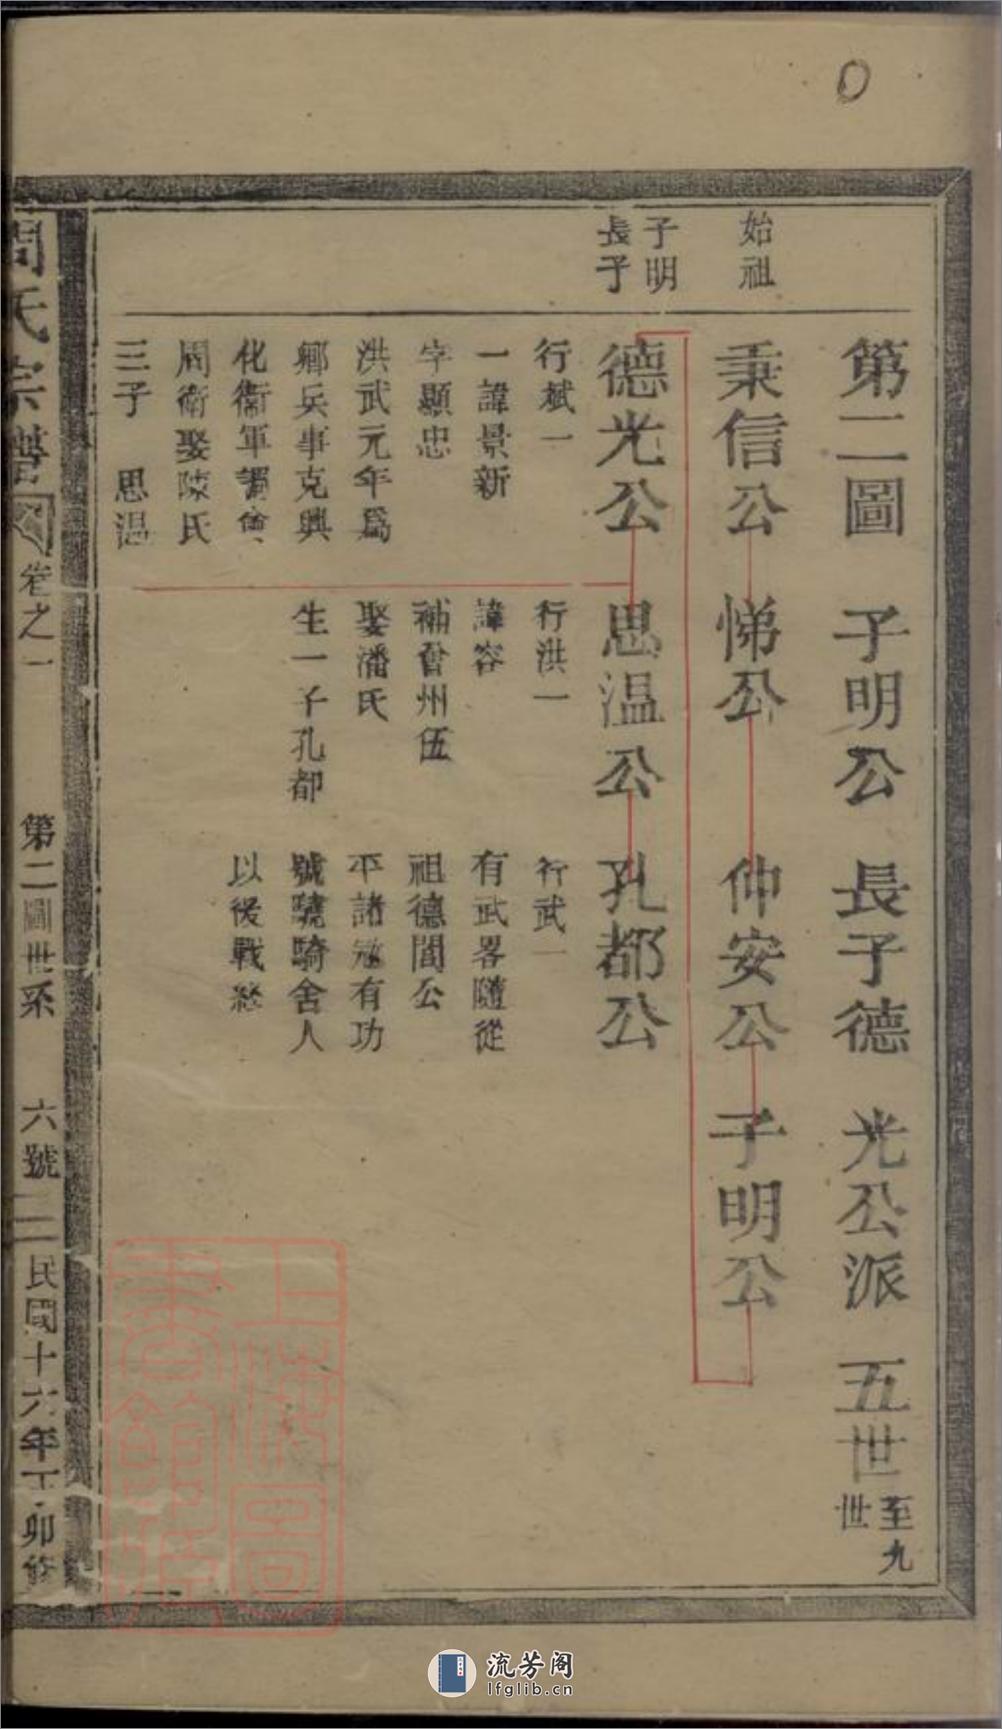 第二圖 子明公 長子德 光公派 五世至九世
始祖
秉信公 悌公 仲安公 子明公
子明
長子
德光公 思温公 孔都公
行斌一
一諱景新
字顯忠
洪武元年爲
鄉兵事克興
化衞軍
周衛娶陳氏
三子 思温
行洪一
諱容
補曾州伍
娶潘氏
生一子孔都
行武一
有武畧隨從
祖德閏公
平諸冦有功
號驍騎舍人
以後戰
周氏宗譜 卷之一 第二圖世系 六號 二 民國十六年丁卯修
上海圖書館藏
流芳阁
lfglib.cn